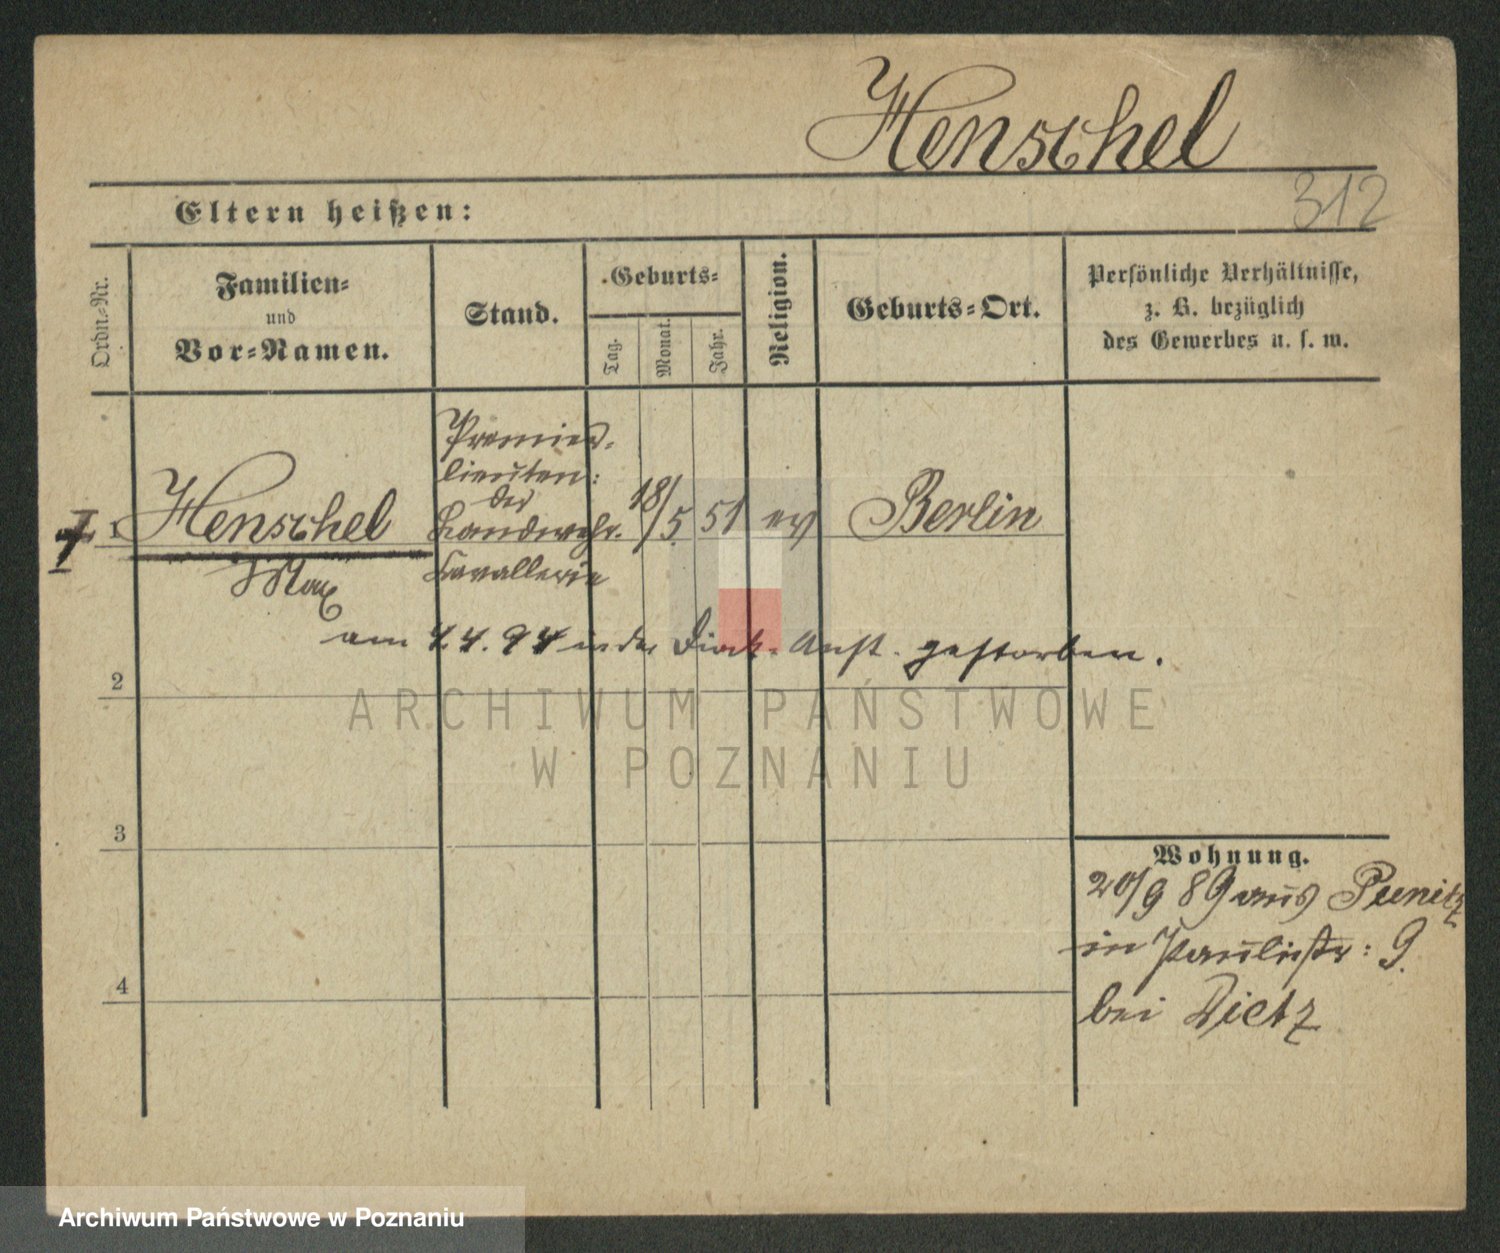 Henschel
312
Eltern heißen:
Ordn.-Nr.
Familien-
und
Vor-Namen.
Stand.
Geburts-
Tag.
Monat.
Jahr.
Religion.
Geburts-Ort.
Persönliche Verhältnisse,
z. B. bezüglich
des Gewerbes u. s. w.
1
Henschel
Max
Premier-
lieuten:
der
Landwehr.
Kavallerie
18/5 51 ev Berlin
am 4.4.94 in der Diak. Anst. gestorben.
2
3
4
Wohnung.
20/9 89 aus Punitz
in Paulistr: 9.
bei Dietz
ARCHIWUM PAŃSTWOWE
W POZNANIU
Archiwum Państwowe w Poznaniu